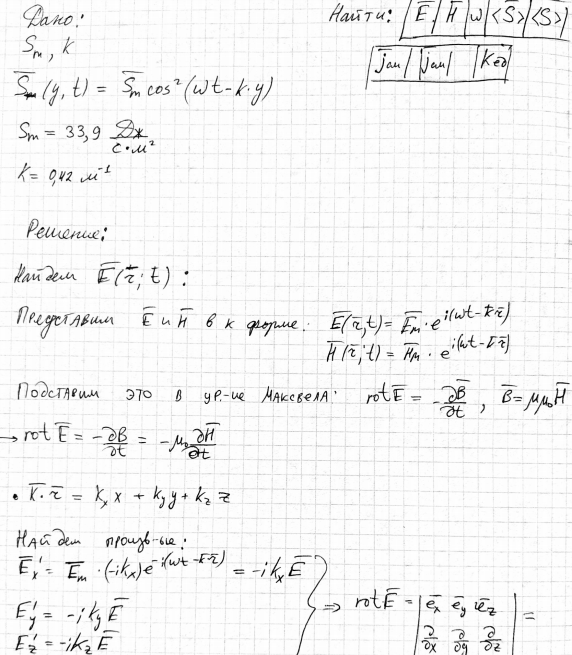 Дано:
Найти: | E̅ | H̅ | w | <S̅> | <S> |
S_m, k
| j̅_см | |j_см| | K_ед |
S̅_m(y, t) = S̅_m cos²(ωt - k·y)
S_m = 33,9 Дж/с·м²
K = 0,42 м⁻¹
Решение:
Найдем E̅(r̅; t) :
Представим E̅ и H̅ в к форме: E̅(r̅,t) = E̅_m · e^{i(ωt - k̅·r̅)}
H̅(r̅;t) = H̅_m · e^{i(ωt - k̅·r̅)}
Подставим это в ур-ие Максвела: rot E̅ = -∂B̅/∂t , B̅ = μμ₀H̅
→ rot E̅ = -∂B/∂t = -μ₀ ∂H̅/∂t
• K̅·r̅ = k_x x + k_y y + k_z z
Найдем произв-ые:
E̅'_x = E̅_m · (-ik_x)e^{-i(ωt - k̅·r̅)} = -ik_x E̅
E'_y = -ik_y E̅
E'_z = -ik_z E̅
} ⇒ rot E̅ = | e̅_x e̅_y e̅_z
∂/∂x ∂/∂y ∂/∂z | =